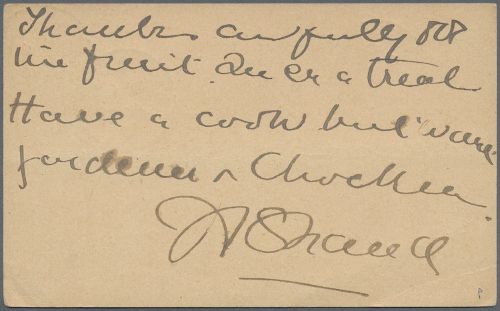 Thanks awfully for
the fruit. Such a treat
Have a cook but want
gardener &